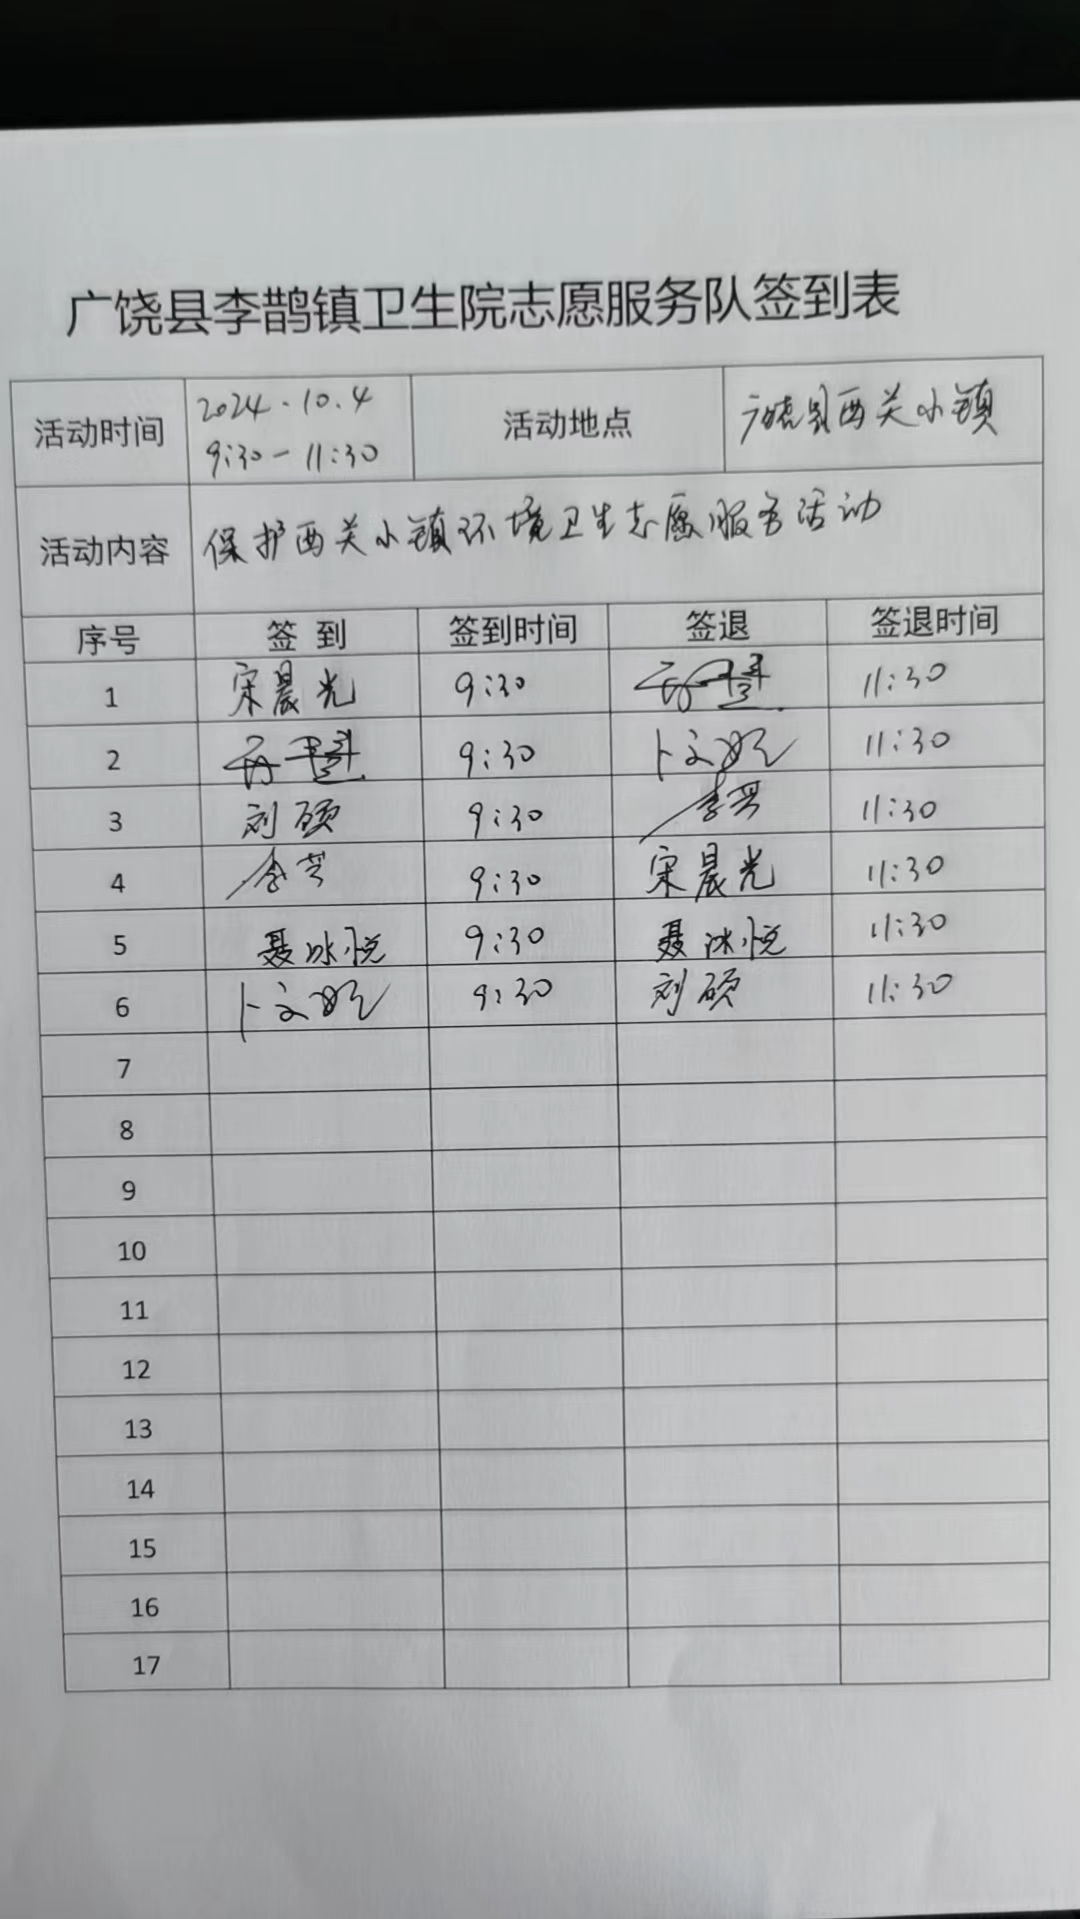 广饶县李鹊镇卫生院志愿服务队签到表
活动时间 2024.10.4 9:30-11:30 活动地点 广饶县西关小镇
活动内容 保护西关小镇环境卫生志愿服务活动
序号 签到 签到时间 签退 签退时间
1 宋晨光 9:30 11:30
2 9:30 卜文妮 11:30
3 刘硕 9:30 11:30
4 9:30 宋晨光 11:30
5 聂冰悦 9:30 聂冰悦 11:30
6 卜文妮 9:30 刘硕 11:30
7
8
9
10
11
12
13
14
15
16
17